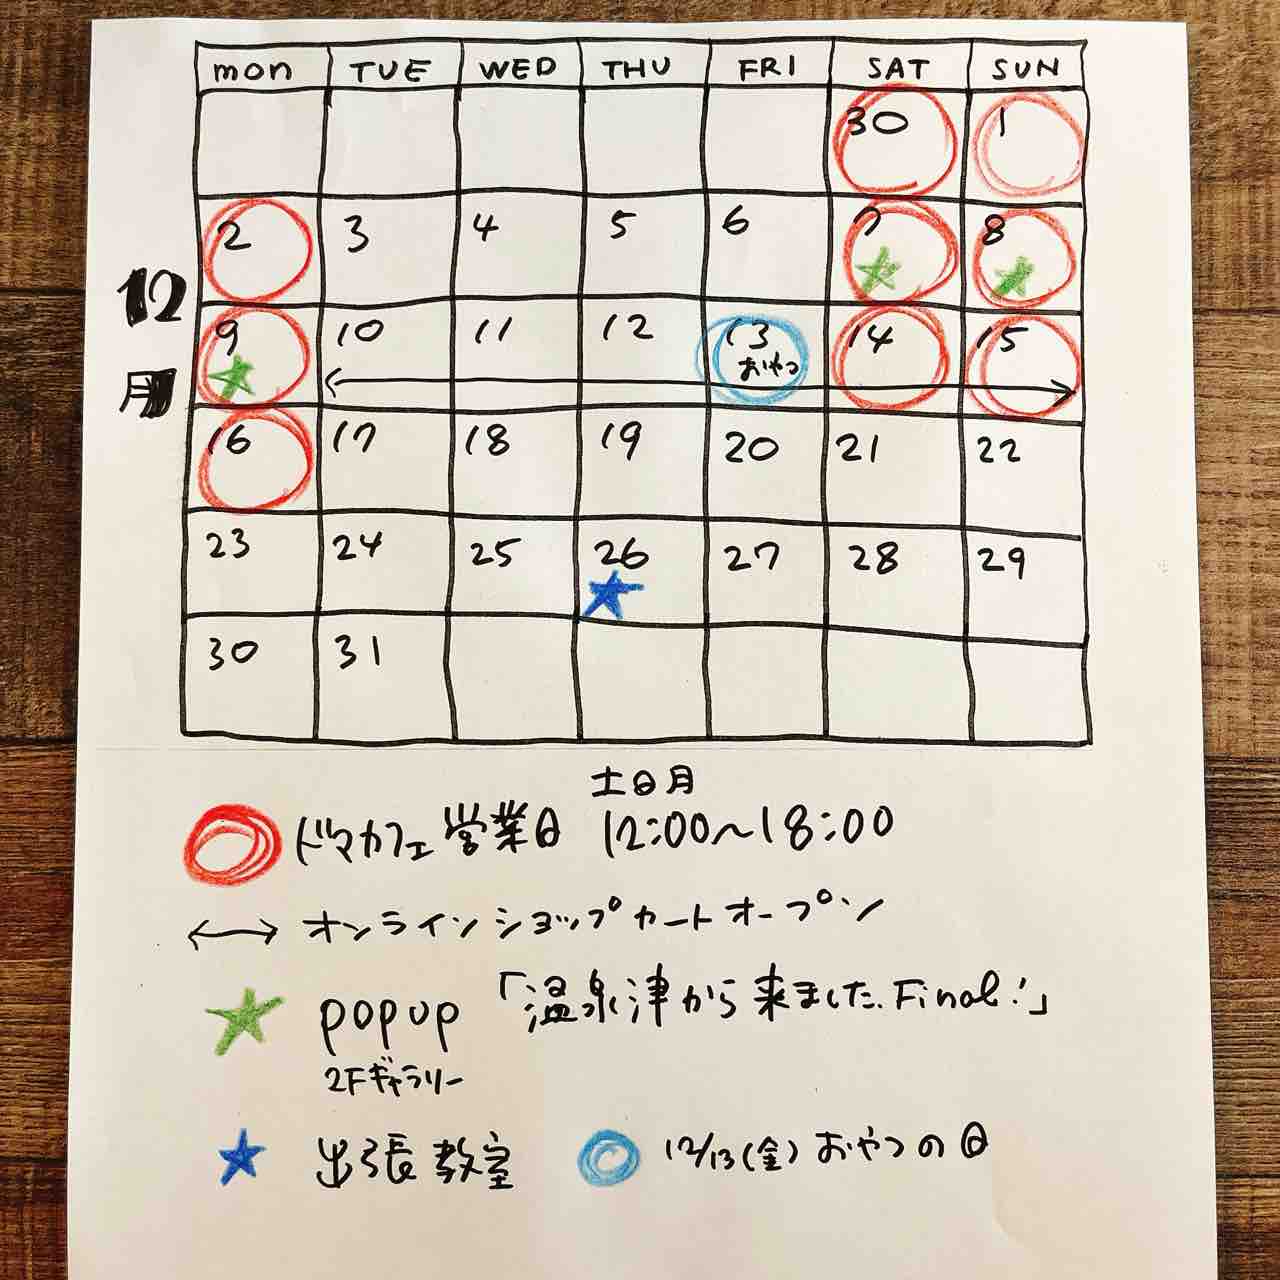 mon TUE WED THU FRI SAT SUN
30 1
2 3 4 5 6 7 8
12
月
9 10 11 12 13 14 15
おやつ
16 17 18 19 20 21 22
23 24 25 26 27 28 29
30 31
土日月
ドマカフェ営業日 12:00〜18:00
オンラインショップカートオープン
popup 「温泉津から来ました.Final!」
2Fギャラリー
出張教室 12/13(金)おやつの日